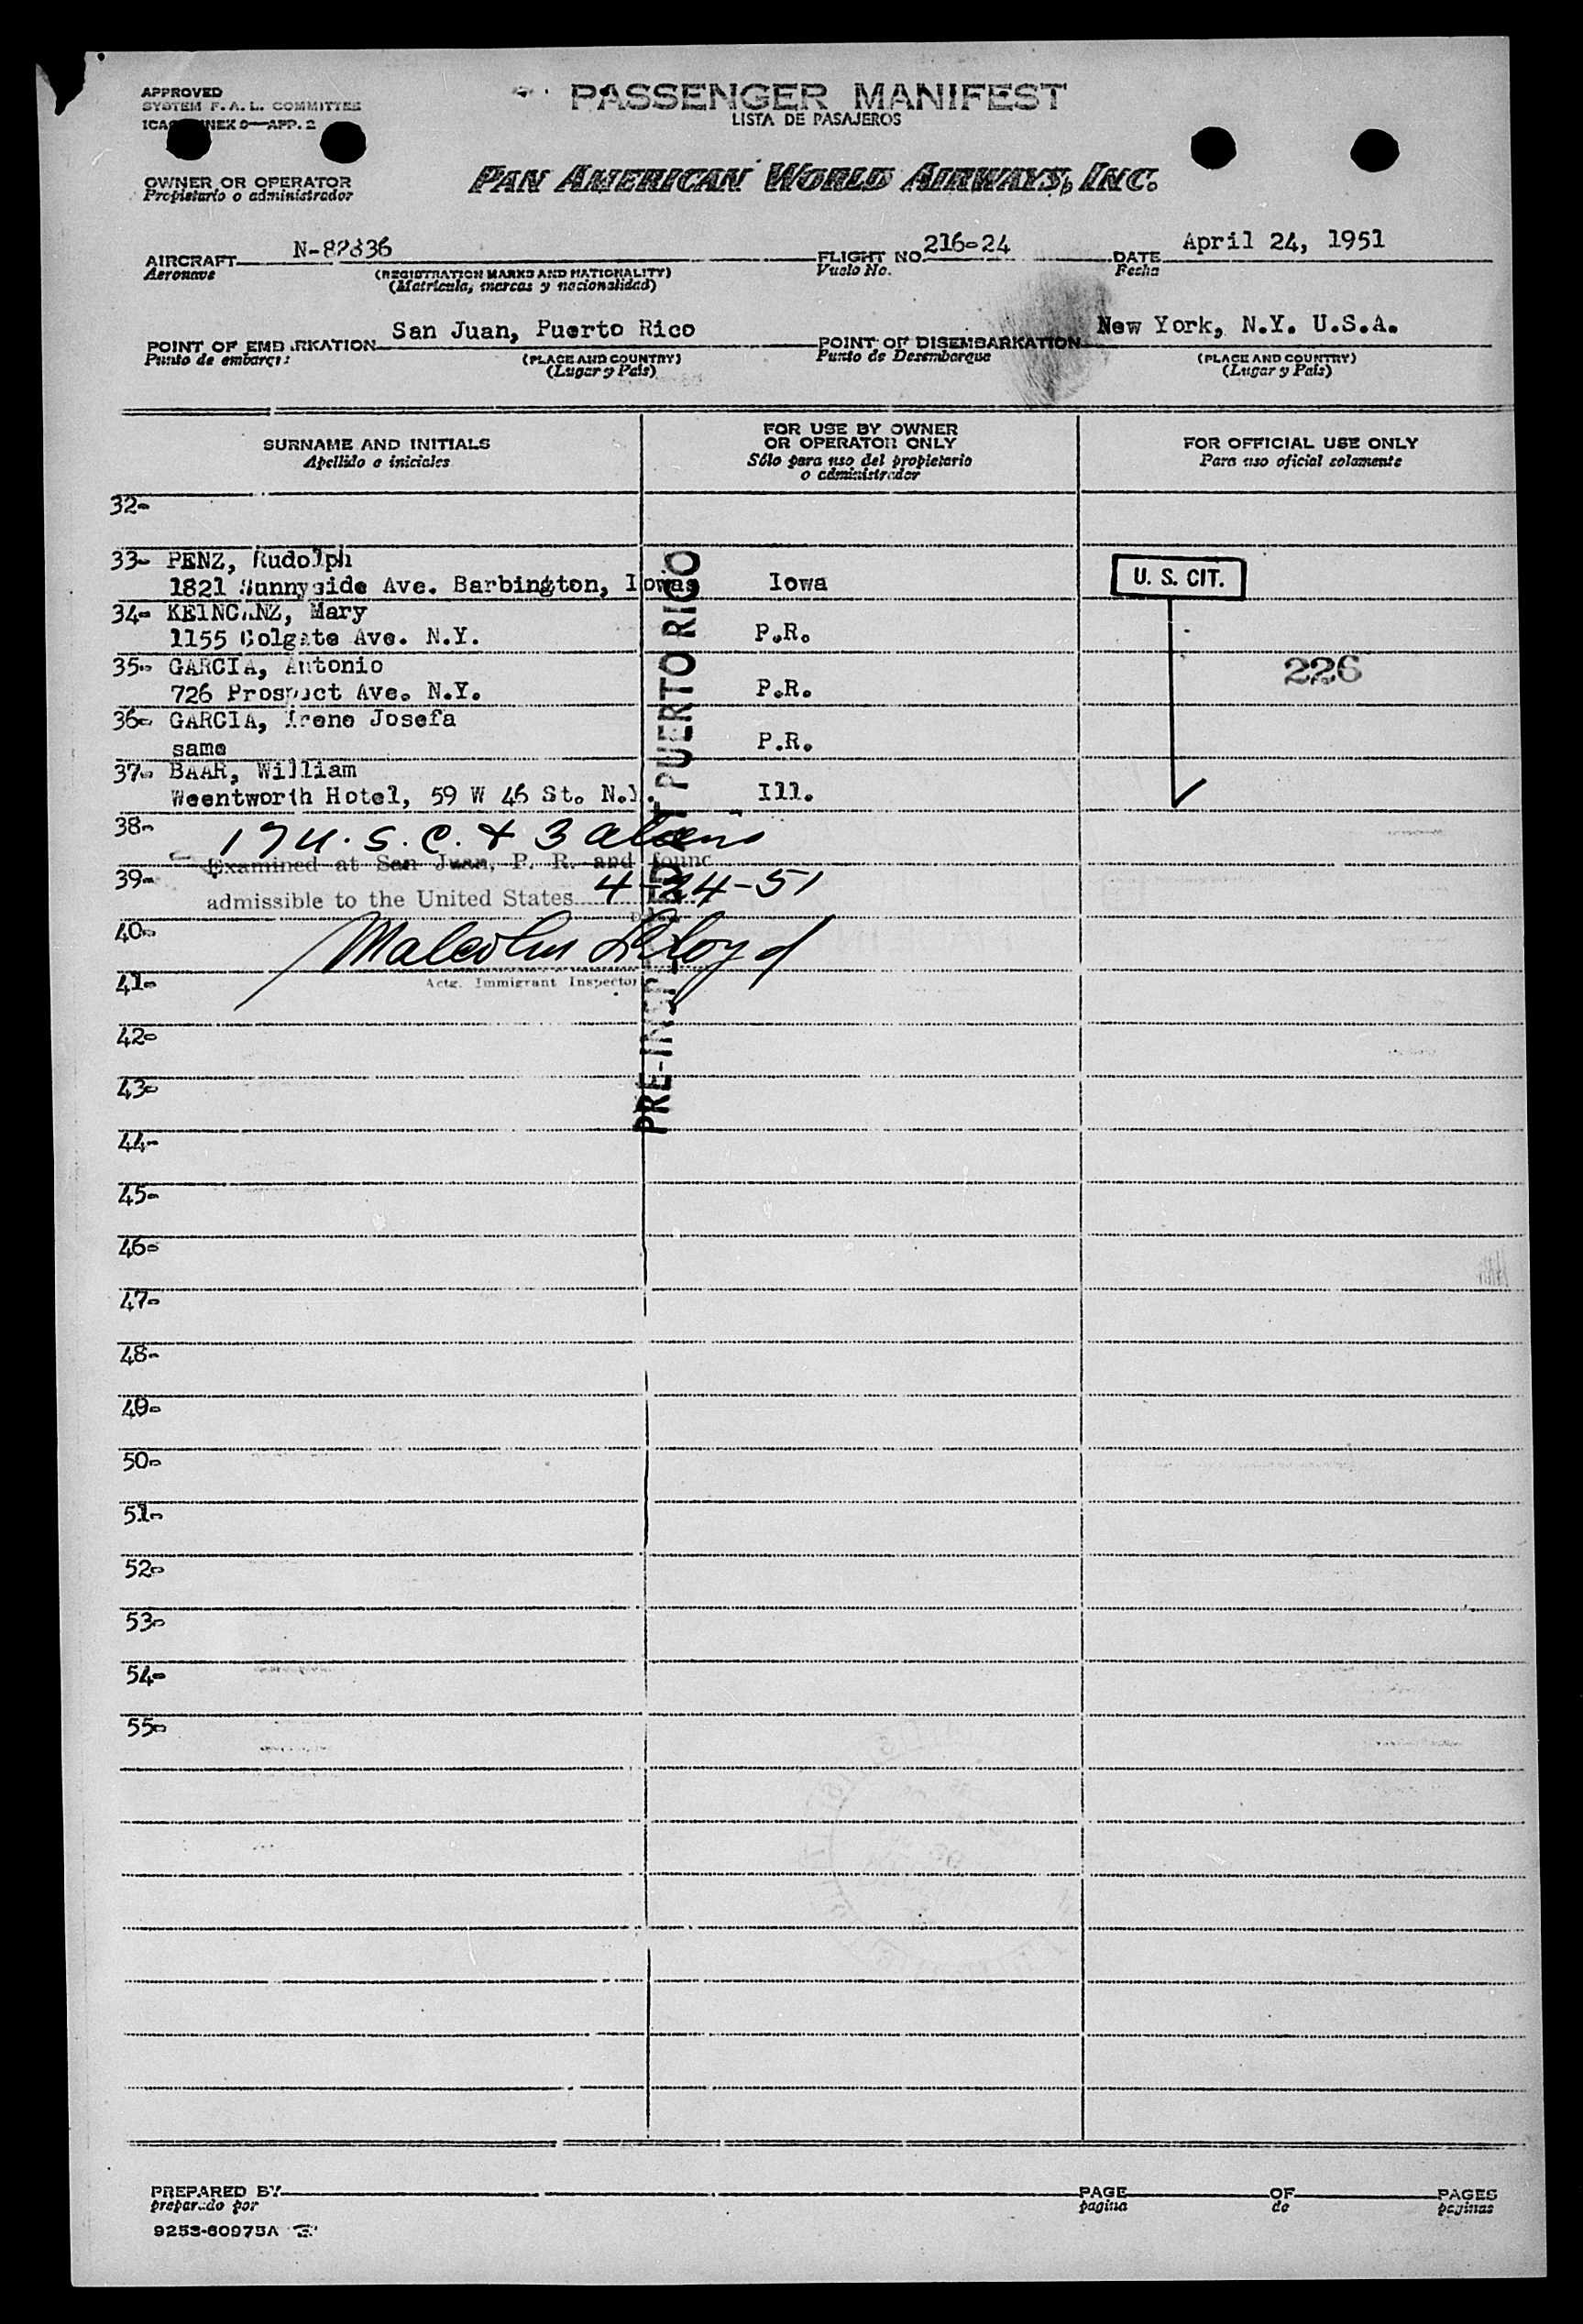 APPROVED
SYSTEM F. A. L. COMMITTEE
ICAO ANNEX 9—APP. 2
PASSENGER MANIFEST
LISTA DE PASAJEROS
OWNER OR OPERATOR
Propietario o administrador
PAN AMERICAN WORLD AIRWAYS, INC.
AIRCRAFT N-82836 FLIGHT NO 216-24 DATE April 24, 1951
Aeronave (REGISTRATION MARKS AND NATIONALITY) Vuelo No. Fecha
(Matricula, marcas y nacionalidad)
POINT OF EMBARKATION San Juan, Puerto Rico POINT OF DISEMBARKATION New York, N.Y. U.S.A.
Punto de embarque (PLACE AND COUNTRY) Punto de Desembarque (PLACE AND COUNTRY)
(Lugar y País) (Lugar y País)
SURNAME AND INITIALS
Apellido e iniciales
FOR USE BY OWNER
OR OPERATOR ONLY
Sólo para uso del propietario
o administrador
FOR OFFICIAL USE ONLY
Para uso oficial solamente
32-
33- PENZ, Rudolph
1821 Sunnyside Ave. Barbington, Iowas Iowa U. S. CIT.
34- KEINCANZ, Mary
1155 Colgate Ave. N.Y. P.R.
35- GARCIA, Antonio 226
726 Prospect Ave. N.Y. P.R.
36- GARCIA, Irene Josefa
same P.R.
37- BAAR, William
Weentworth Hotel, 59 W 46 St. N.Y. Ill.
PRE-INSPECTED AT PUERTO RICO
38- 17 U.S.C. + 3 aliens
Examined at San Juan, P. R. and found
39-
admissible to the United States 4-24-51
40- Malcolm Lloyd
41- Actg. Immigrant Inspector
42-
43-
44-
45-
46-
47-
48-
49-
50-
51-
52-
53-
54-
55-
PREPARED BY PAGE OF PAGES
preparado por pagina de paginas
9253-60975A